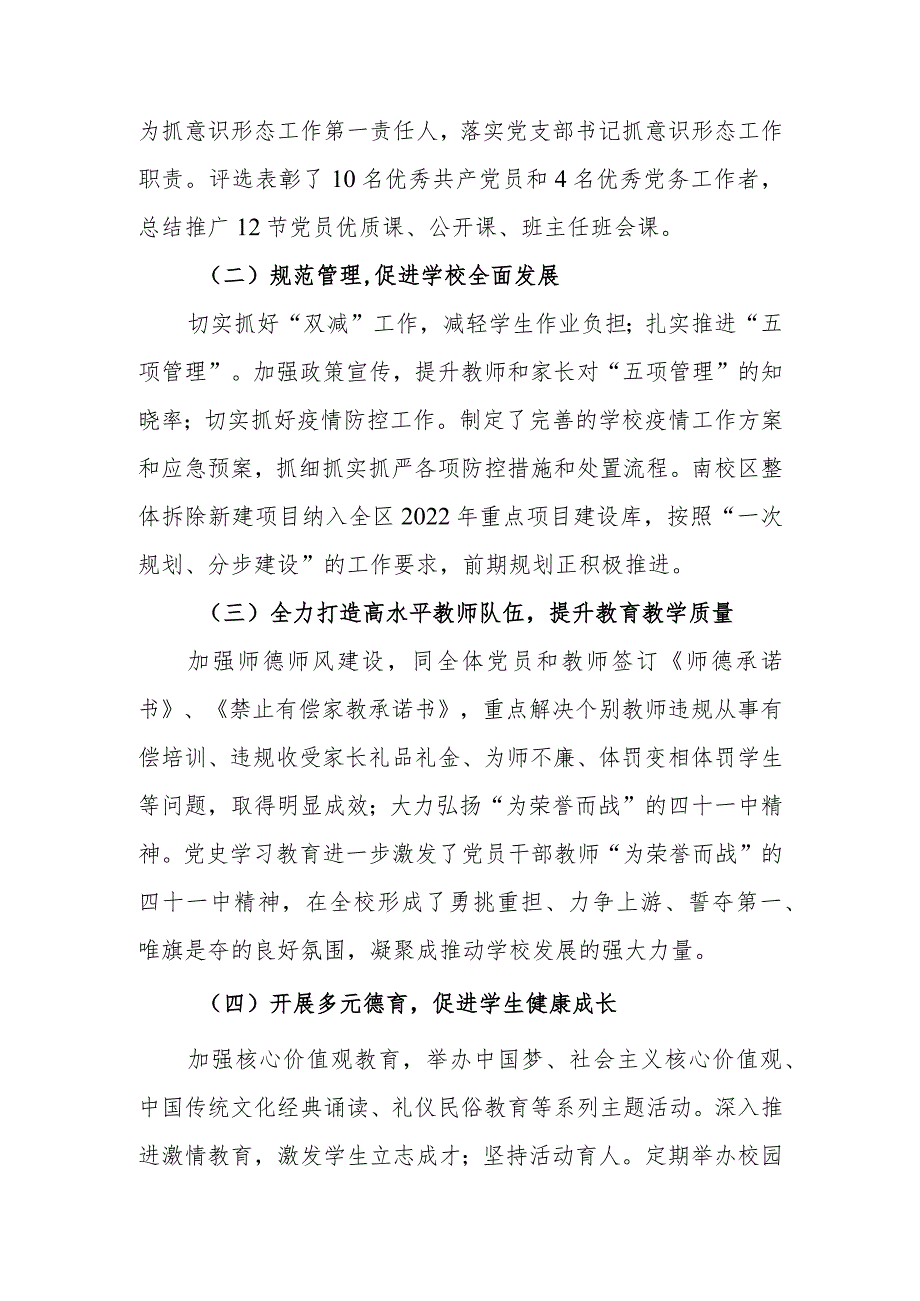 为抓意识形态工作第一责任人，落实党支部书记抓意识形态工作
职责。评选表彰了 10 名优秀共产党员和 4 名优秀党务工作者，
总结推广 12 节党员优质课、公开课、班主任班会课。
（二）规范管理,促进学校全面发展
切实抓好“双减”工作，减轻学生作业负担；扎实推进“五
项管理”。加强政策宣传，提升教师和家长对“五项管理”的知
晓率；切实抓好疫情防控工作。制定了完善的学校疫情工作方案
和应急预案，抓细抓实抓严各项防控措施和处置流程。南校区整
体拆除新建项目纳入全区 2022 年重点项目建设库，按照“一次
规划、分步建设”的工作要求，前期规划正积极推进。
（三）全力打造高水平教师队伍，提升教育教学质量
加强师德师风建设，同全体党员和教师签订《师德承诺
书》、《禁止有偿家教承诺书》，重点解决个别教师违规从事有
偿培训、违规收受家长礼品礼金、为师不廉、体罚变相体罚学生
等问题，取得明显成效；大力弘扬“为荣誉而战”的四十一中精
神。党史学习教育进一步激发了党员干部教师“为荣誉而战”的
四十一中精神，在全校形成了勇挑重担、力争上游、誓夺第一、
唯旗是夺的良好氛围，凝聚成推动学校发展的强大力量。
（四）开展多元德育，促进学生健康成长
加强核心价值观教育，举办中国梦、社会主义核心价值观、
中国传统文化经典诵读、礼仪民俗教育等系列主题活动。深入推
进激情教育，激发学生立志成才；坚持活动育人。定期举办校园